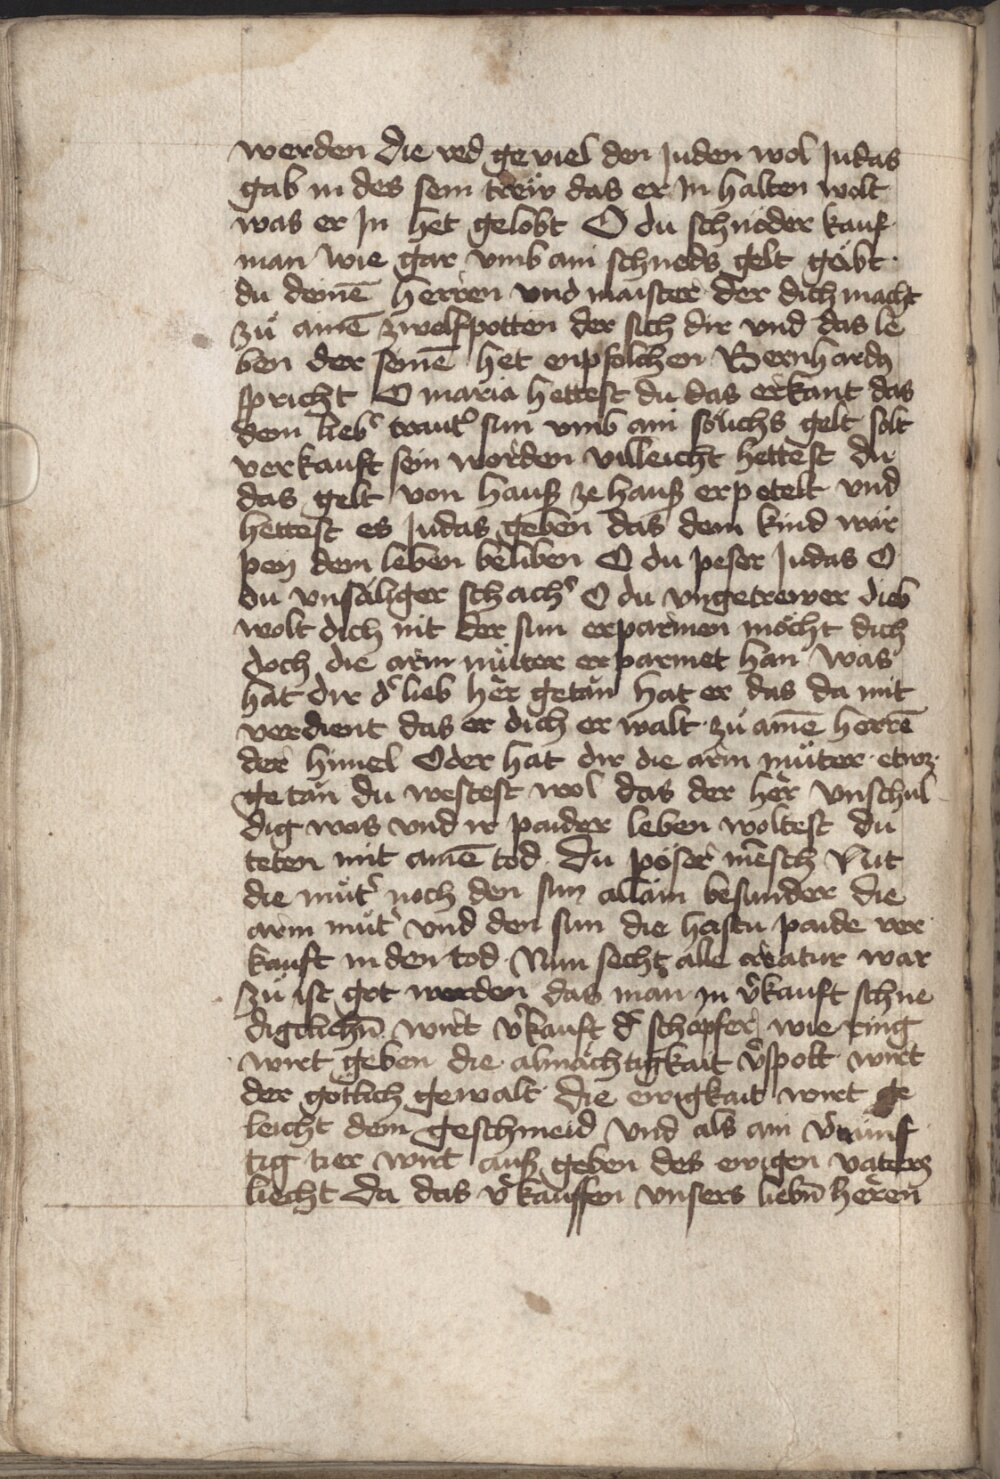 werden Die red ge viel den Juden wol Judas
gab in des sein trew das er In halten wolt
was er In het gelobt O du schnöder kauf
man wie gar vmb ain schneds gelt geibt
du deinē herren vnd maister der dich macht
zů ainē zwelfpotten der sich dir vnd das le
ben der seinē het enpfolchen Bernhardq
spricht O maria hettest du das erkant das
dein lieb' traut' sun vmb ain sölichs gelt solt
verkauft sein worden villeicht hettest du
das gelt von hauß ze hauß erpetelt vnd
hettest es Judas geben das dein kind wär
peӱ dem leben beliben O du peser Judas O
du vnsäliger schach' O du vngetrewer dieb
wolt dich nit der sun erparmen möcht dich
doch die arm můter er parmet han was
hat dir d' lieb her getan hat er das da mit
verdient das er dich er walt zů ainē herrē
der himel Oder hat dir die arm můter etwz
ge tan du westest wol das der her vnschul
dig was vnd ir paider leben woltest du
teten mit ainē tod Du pöser mēsch Nit
die můt' noch den sun allain besunder die
arm můt' vnd den sun die hastu paide ver
kauft in den tod Nun secht alle creatur war
zů ist got worden das man in v'kauft schne
digclichn̄ wirt v'kauft d' schöpfer wie ring
wirt geben die almächtigkait v'spott wirt
der götlich gewalt die ewigkait wirt ge
leicht dem geschmeid vnd als ain v'nünf
tig tier wirt auß geben des ewigen vaters
liecht Da das v'kauffen vnsers liebn̄ herren